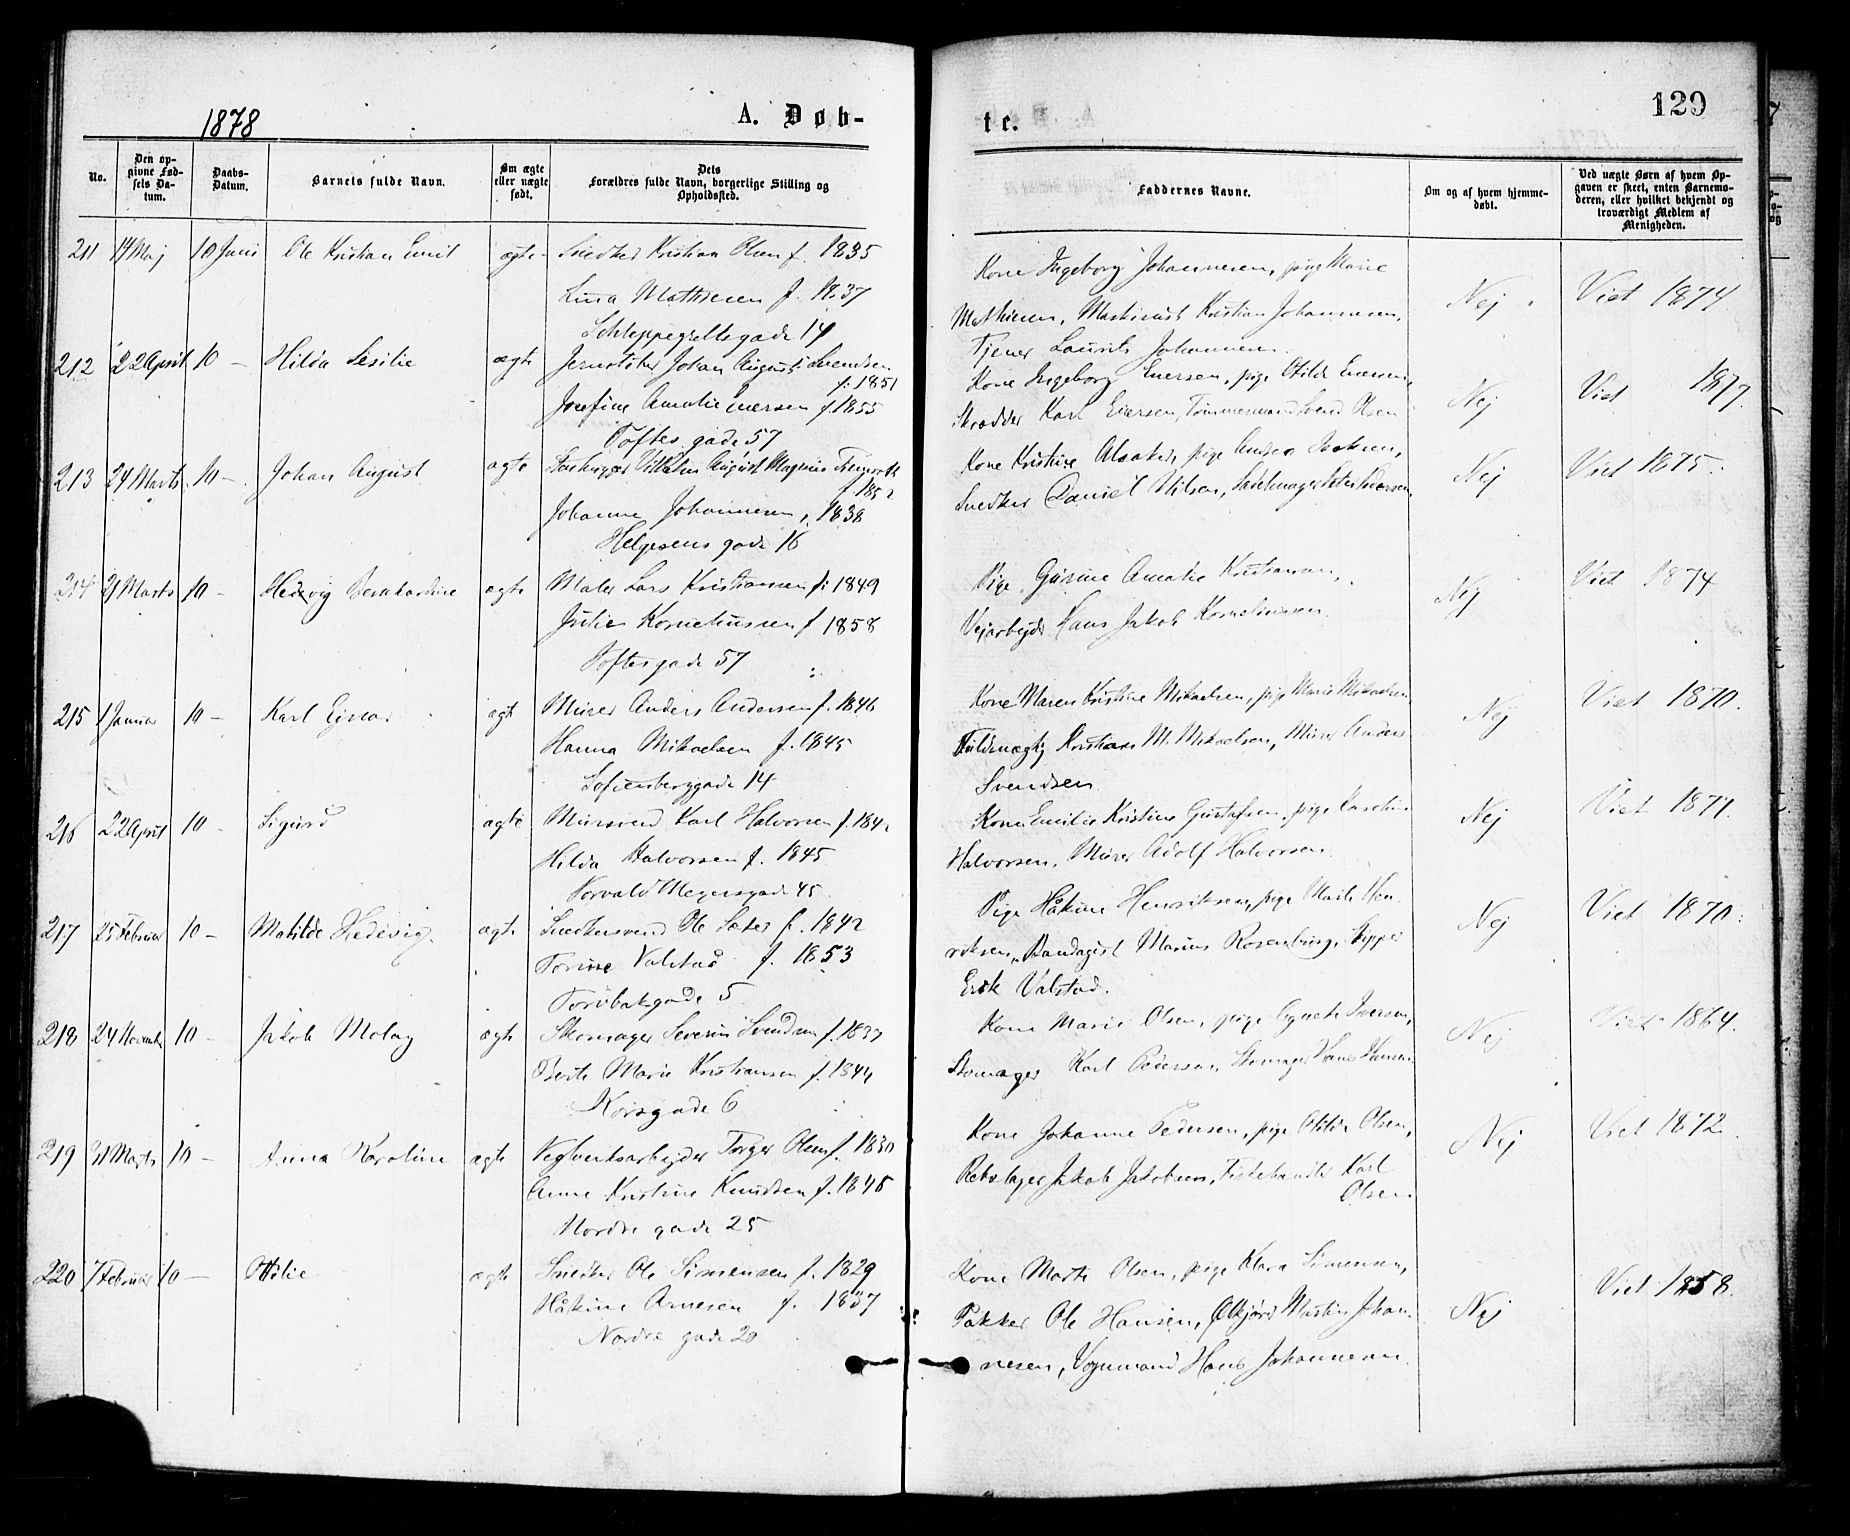 1878
A. Døb-
te.
129
No.
Den op-
givne Fød-
sels Da-
tum.
Daabs-
Datum.
Barnets fulde Navn.
Om ægte
eller uægte
født.
Dets
Forældres fulde Navn, borgerlige Stilling og
Opholdssted.
Faddernes Navne.
Om og af hvem hjemme-
døbt.
Ved uægte Børn af hvem Op-
gaven er skeet, enten Barnemo-
deren, eller hvilket bekjendt og
troværdigt Medlem af
Menigheden.
211 14 Maj 10 Juni Ole Kristian Emil ægte Snedker Kristian Olsen f. 1835
Lina Mathisen f. 1837
Schleppegrellsgade 14
Kone Ingeborg Johannesen, pige Marie
Mathisen, Kristian Johannesen,
Tjener Laurits Johannesen
Nej
Viet 1874
212 22 April 10 — Hilda Cesilie ægte Johan August Svendsen
f. 1851
Josefine Amalie f. 1855
Toftes gade 57
Kone Ingeborg Enersen, pige Otilde Enersen,
Skrædder Karl Enersen, Tømmermand Svend Olsen
Nej
Viet 1877.
213 24 Marts 10 — Johan August ægte Vilhelm August Magnus
Johanne Johannesen, 1838
Helgesens gade 16
Kone Kristine pige Andrea
Snedker Daniel Nilsen, Sadelmager Peter
Nej
Viet 1875.
214 21 Marts 10 — Hedvig Bernhardine ægte Maler Lars Kristiansen f. 1849
Julie Korneliussen f 1858
Toftesgade 57
Pige Gusine Amalie Kristiansen,
Vejarbejder Hans Jakob Korneliussen
Nej
Viet 1874
215 1 Januar 10 — Karl Ejnar ægte Murer Anders Andersen f. 1846
Hanna Mikaelsen f. 1845
Sofienberggade 14
Kone Maren Kristine Mikaelsen, pige Marie Mikaelsen
Fuldmægtig Kristian M. Mikaelsen, Murer Anders
Svendsen
Nej
Viet 1870.
216 22 April 10 — Sigurd ægte Mursvend Karl Halvorsen f. 184
Hilda Halvorsen f. 1845
Torvald Meyersgade 45
Kone Emilie Kristine Gustafsen, pige Karoline
Halvorsen, Murer Adolf Halvorsen
Nej
Viet 1877.
217 25 Februar 10 — Matilde Hedevig ægte Snedkersvend Ole Sæter f. 1842
Torine Valstad f. 1853
Torvbakgade 5
Pige Håkine Henriksen, pige Marte Hen-
riksen, Bandagist Marius Rosenberg, Skipper
Erik Valstad.
Nej
Viet 1870.
218 24 November 10 — Jakob Molay ægte Skomager Severin Svendsen f. 1837
Berte Marie Kristiansen f. 1844
Korsgade 6
Kone Marie Olsen, pige Agnete Iversen,
Skomager Karl Pedersen, Skomager Hans Hansen
Nej
Viet 1864.
219 31 Marts 10 — Anna Karoline ægte Vegverksarbejder Torger Olsen f. 1830
Anne Kristine Knudsen f. 1845
Nordre gade 25
Kone Johanne Pedersen, pige Otilde Olsen,
Rebslager Jakob Jakobsen, Fiskehandler Karl
Olsen
Nej
Viet 1872
220 7 Februar 10 — Ottilie ægte Snedker Ole Simensen f. 1829
Håkine Arnesen f. 1837
Nordre gade 20
Kone Marte Olsen, pige Klara Simensen,
Pakker Ole Hansen, Ølkjører Martin Johan-
nesen, Vognmand Hans Johannesen
Nej
Viet 1858.